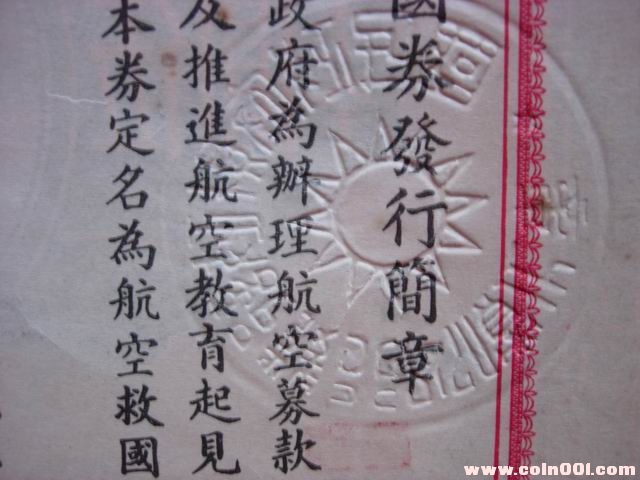 國券發行簡章
政府為辦理航空募款
及推進航空教育起見
本券定名為航空救國
www.coin001.com